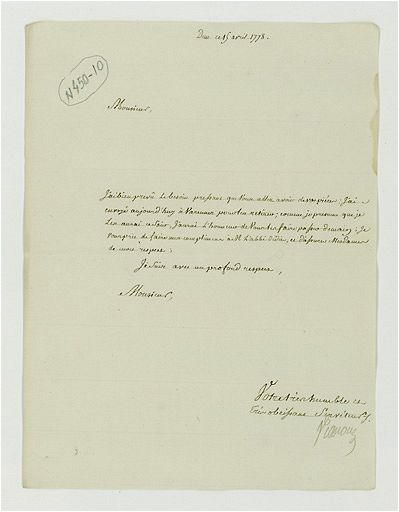 ce 15 avril 1778.
N450-10
Monsieur,
J'ai bien prevû le besoin pressant que vous allez avoir de papier; J'ai
envoyé aujourd'huy à pour les retirer; comme je presume que je
les aurai ce soir, J'aurai l'honneur de vous les faire passer demain; Je
vous prie de faire mes complimens a M. L'abbé et d'assurer Madame
de mon respect;
Je suis avec un profond respect,
Monsieur,
Votre tres humble et
tres obeissant Serviteur